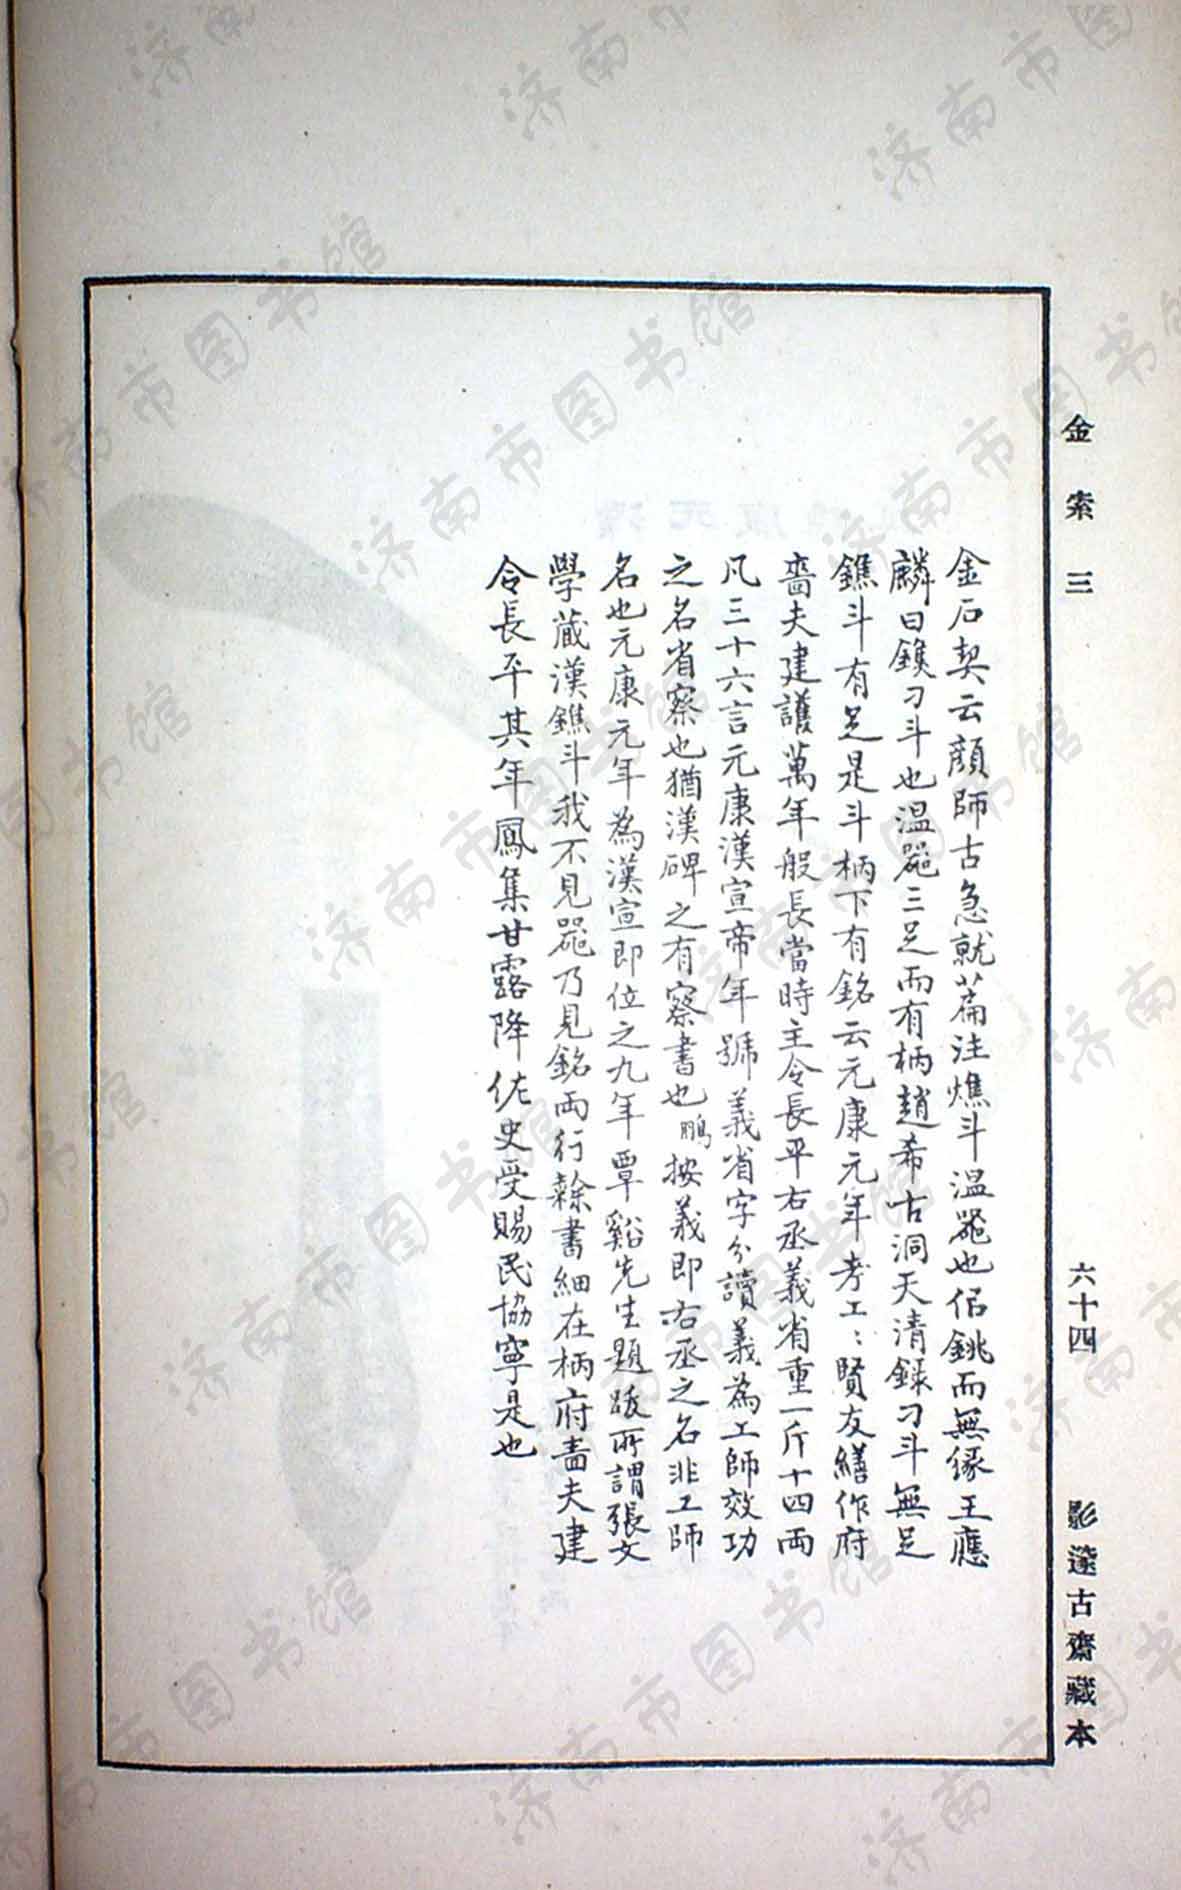 金索三
六十四
影邃古齋藏本
金石契云顏師古急就篇注鐎斗溫器也佀銚而無緣王應
麟曰鐎刁斗也溫器三足而有柄趙希古洞天清錄刁斗無足
鐎斗有足是斗柄下有銘云元康元年考工〻賢友繕作府
嗇夫建護萬年般長當時主令長平右丞義省重一斤十四兩
凡三十六言元康漢宣帝年號義省字分讀義為工師效功
之名省察也猶漢碑之有察書也鵬按義即右丞之名非工師
名也元康元年為漢宣即位之九年覃谿先生題跋所謂張文
學藏漢鐎斗我不見器乃見銘兩行隸書細在柄府嗇夫建
令長平其年鳳集甘露降佐史受賜民協寧是也
济南市图书馆